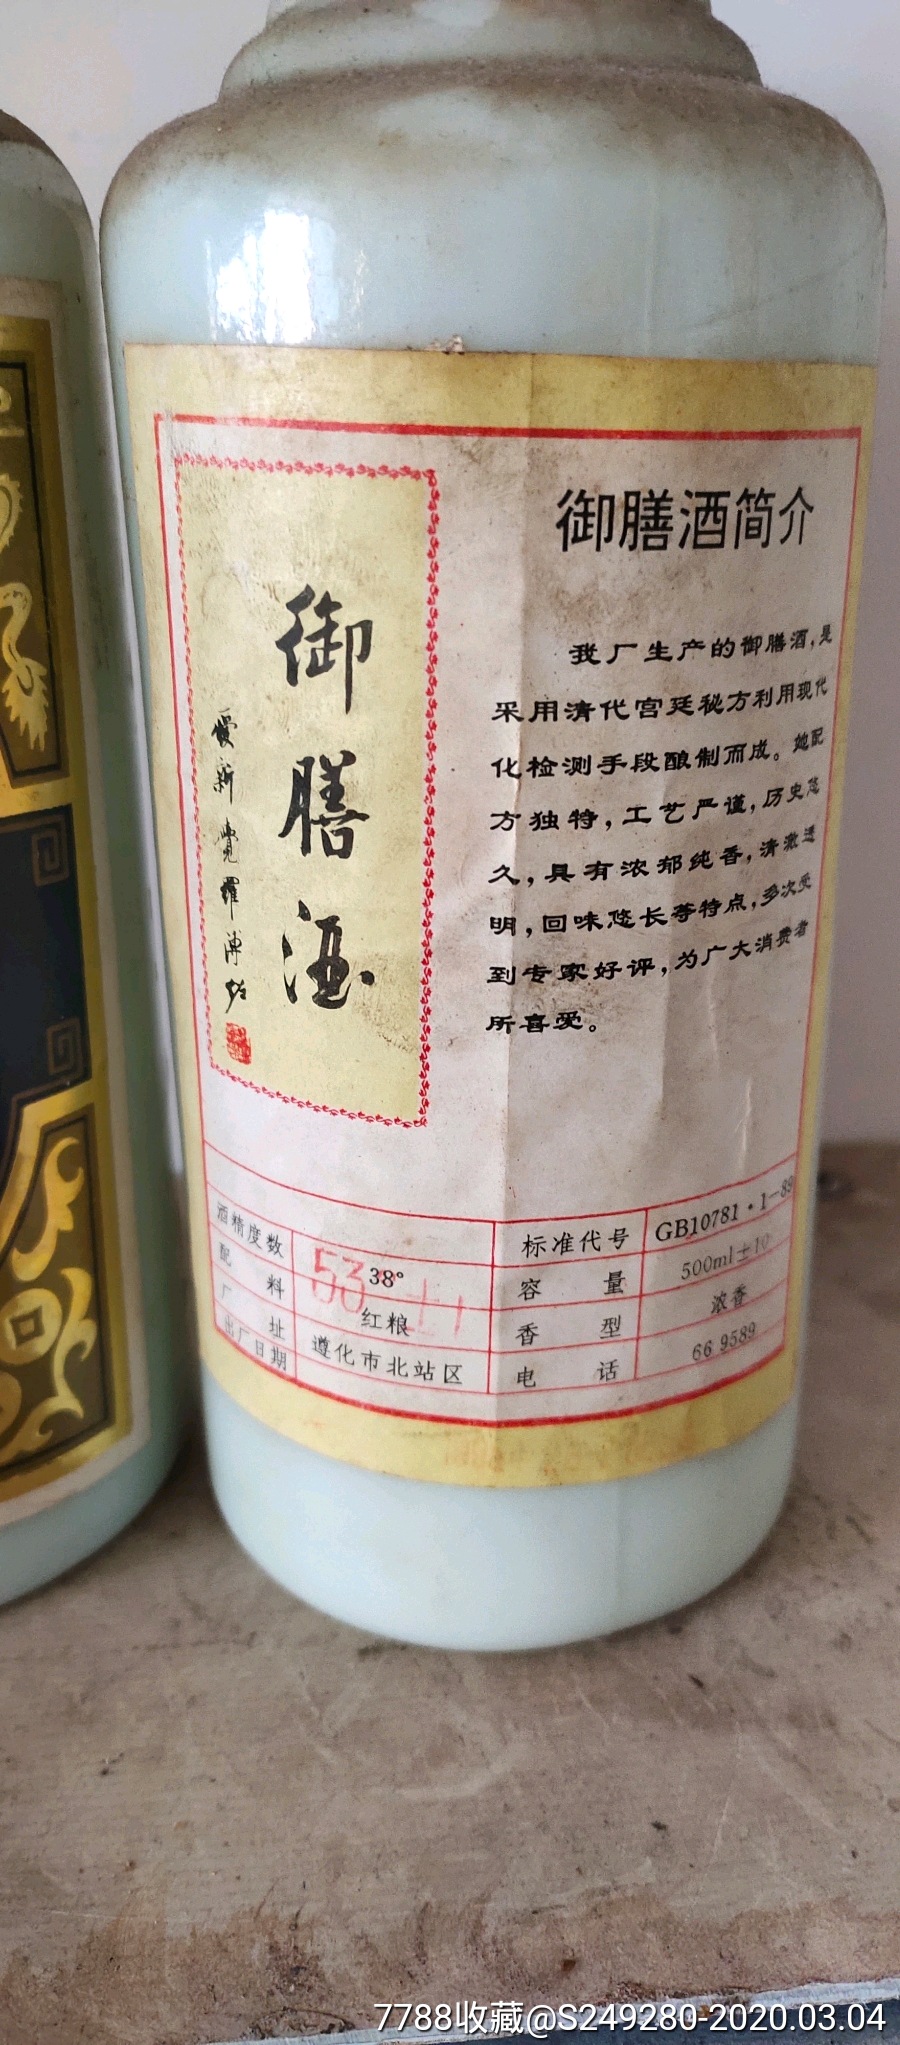 御膳酒
爱新覺羅溥佐
御膳酒简介
我厂生产的御膳酒，是
采用清代宫廷秘方利用现代
化检测手段酿制而成。她配
方独特，工艺严谨，历史悠
久，具有浓郁纯香，清澈透
明，回味悠长等特点，多次受
到专家好评，为广大消费者
所喜爱。
酒精度数 38° 标准代号 GB10781·1-89
配料 红粮 容量 500ml±10
厂址 遵化市北站区 香型 浓香
出厂日期 电话 66 9589
53
7788收藏@S249280-2020.03.04